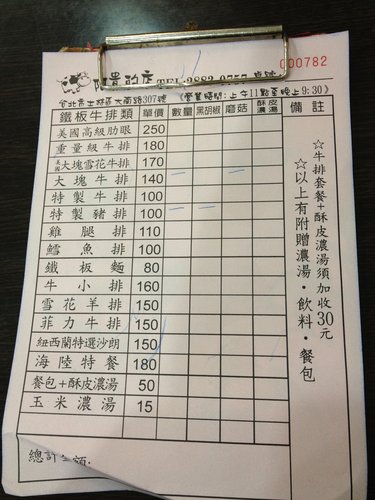 000782
TEL:2883-0757 桌號
台北市士林區大南路307號 《營業時間:上午11點至晚上9:30》
鐵板牛排類 單價 數量 黑胡椒 蘑菇 酥皮濃湯 備註
美國高級肋眼 250
重量級牛排 180
美國大塊雪花牛排 170
大塊牛排 140
特製牛排 100
特製豬排 100
雞腿排 110
鱈魚排 100
鐵板麵 80
牛小排 160
雪花羊排 150
菲力牛排 150
紐西蘭特選沙朗 150
海陸特餐 180
餐包+酥皮濃湯 50
玉米濃湯 15
☆牛排套餐+酥皮濃湯須加收30元
☆以上有附贈濃湯·飲料·餐包
總計金額: